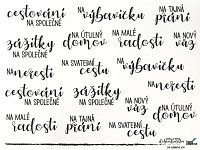 cestování
NA SPOLEČNÉ
NA
výbavičku
NA TAJNÁ
přání
zážitky
NA SPOLEČNÉ
NA ÚTULNÝ
domov
NA MALÉ
radosti
NA NOVÝ
váz
NA
neřesti
NA SVATEBNÍ
cestu
NA
výbavičku
cestování
NA SPOLEČNÉ
zážitky
NA SPOLEČNÉ
NA NOVÝ
váz
NA
neřesti
NA MALÉ
radosti
NA TAJNÁ
přání
NA SVATEBNÍ
cestu
NA ÚTULNÝ
domov